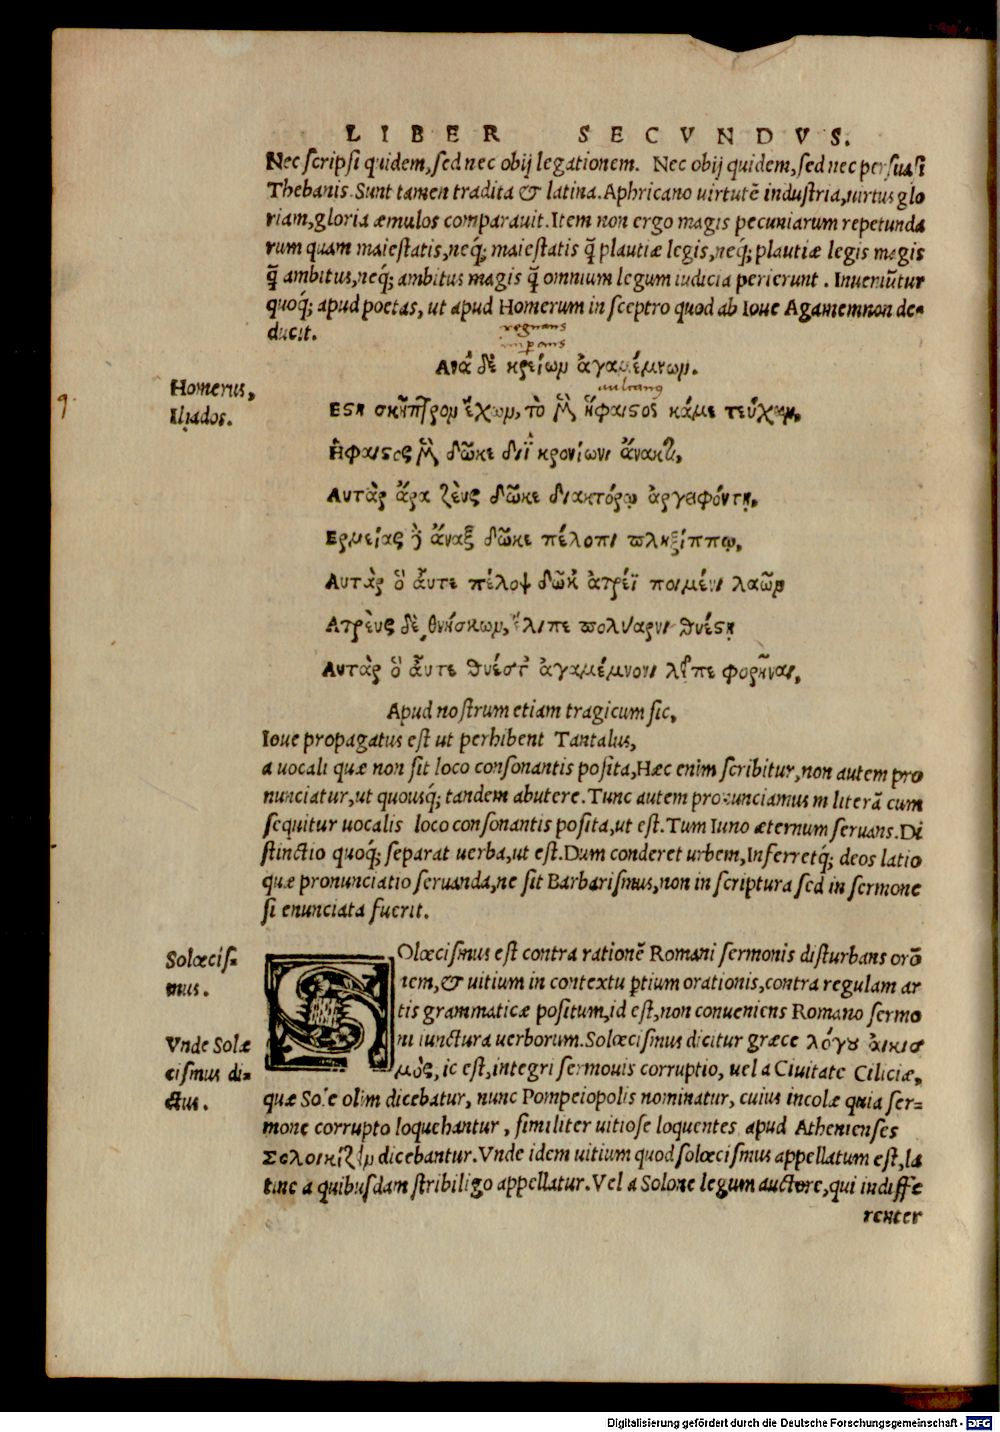 LIBER SECVNDVS.
Nec scripsi quidem, sed nec obij legationem. Nec obij quidem, sed nec persuasi
Thebanis. Sunt tamen tradita & latina. Aphricano virtutē industria, uirtus glo
riam, gloria æmulos comparauit. Item non ergo magis pecuniarum repetunda
rum quam maiestatis, neq; maiestatis q̃ plautiæ legis, neq; plautiæ legis magis
q̃ ambitus, neq; ambitus magis q̃ omnium legum iudicia perierunt. Inueniūtur
quoq; apud poetas, ut apud Homerum in sceptro quod ab Ioue Agamemnon de-
ducit.
regnans
imꝑans
Ανὰ δὲ κρείων ἀγαμέμνων.
Homerus,
Iliados.
9.
Εϛη σκῆπτρον ἔχων, τὸ μὲν ἥφαιϛος κάμε τεύχων,
Ηφαιϛος μὲν δῶκε διῒ κρονίωνι ἄνακτι,
Αυτὰρ ἄρα ζεὺς δῶκε διακτόρῳ ἀργειφόντῃ,
Ερμείας δὲ ἄναξ δῶκε πέλοπι πληξίππῳ,
Αυτὰρ ὃ ἆυτε πέλοψ δῶκ' ἀτρέϊ ποιμένι λαῶν
Ατρεὺς δὲ θνήσκων, ἔλιπε πολυαρνι θυέϛῃ
Αυτὰρ ὃ ἆυτε θυέστ' ἀγαμέμνονι λεῖπε φορῆναι,
Apud nostrum etiam tragicum sic,
Ioue propagatus est ut perhibent Tantalus,
a uocali quæ non sit loco consonantis posita, Hæc enim scribitur, non autem pro
nunciatur, ut quousq; tandem abutere. Tunc autem pronunciamus m literā cum
sequitur uocalis loco consonantis posita, ut est. Tum Iuno æternum seruans. Di
stinctio quoq; separat uerba, ut est. Dum conderet urbem, Inferretq; deos latio
quæ pronunciatio seruanda, ne sit Barbarismus, non in scriptura sed in sermone
si enunciata fuerit.
Solœcis-
mus.
SOlœcismus est contra rationē Romani sermonis disturbans orō
nem, & uitium in contextu ꝑtium orationis, contra regulam ar
tis grammaticæ positum, id est, non conueniens Romano sermo
Vnde Solæ
cismus di-
ctus.
ni iunctura uerborum. Solœcismus dicitur græce λόγου ἀικισ
μὸς, ic est, integri sermonis corruptio, uel a Ciuitate Ciliciæ,
quæ Sole olim dicebatur, nunc Pompeiopolis nominatur, cuius incolæ quia ser-
mone corrupto loquebantur, similiter uitiose loquentes apud Athenienses
Σολοικίζειν dicebantur. Vnde idem uitium quod solœcismus appellatum est, la
tine a quibusdam stribiligo appellatur. Vel a Solone legum auctore, qui indiffe
renter
Digitalisierung gefördert durch die Deutsche Forschungsgemeinschaft - DFG